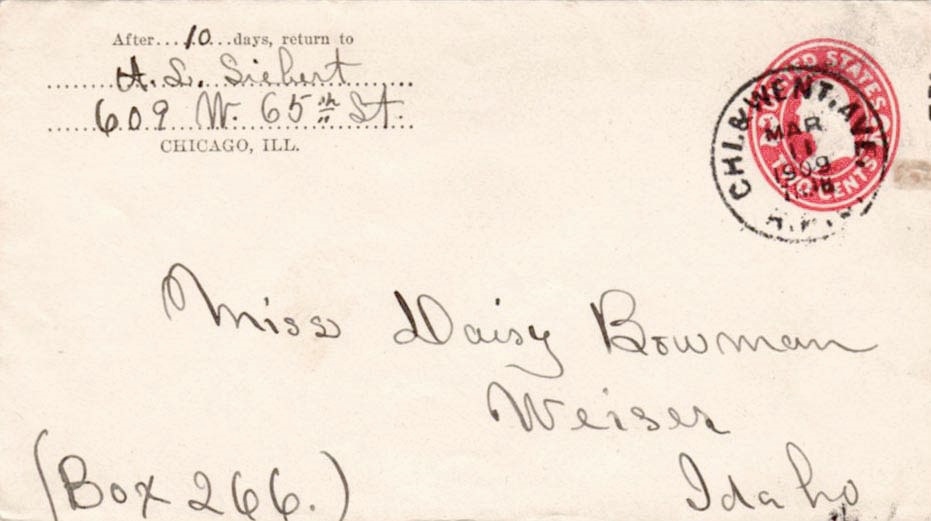 After....10...days, return to
A. L. Siebert
609 W. 65th St.
CHICAGO, ILL.
UNITED STATES
TWO CENTS
CHI. & WENT. AVE.
MAR
11
1909
Miss Daisy Bowman
Weiser
Idaho
(Box 266.)